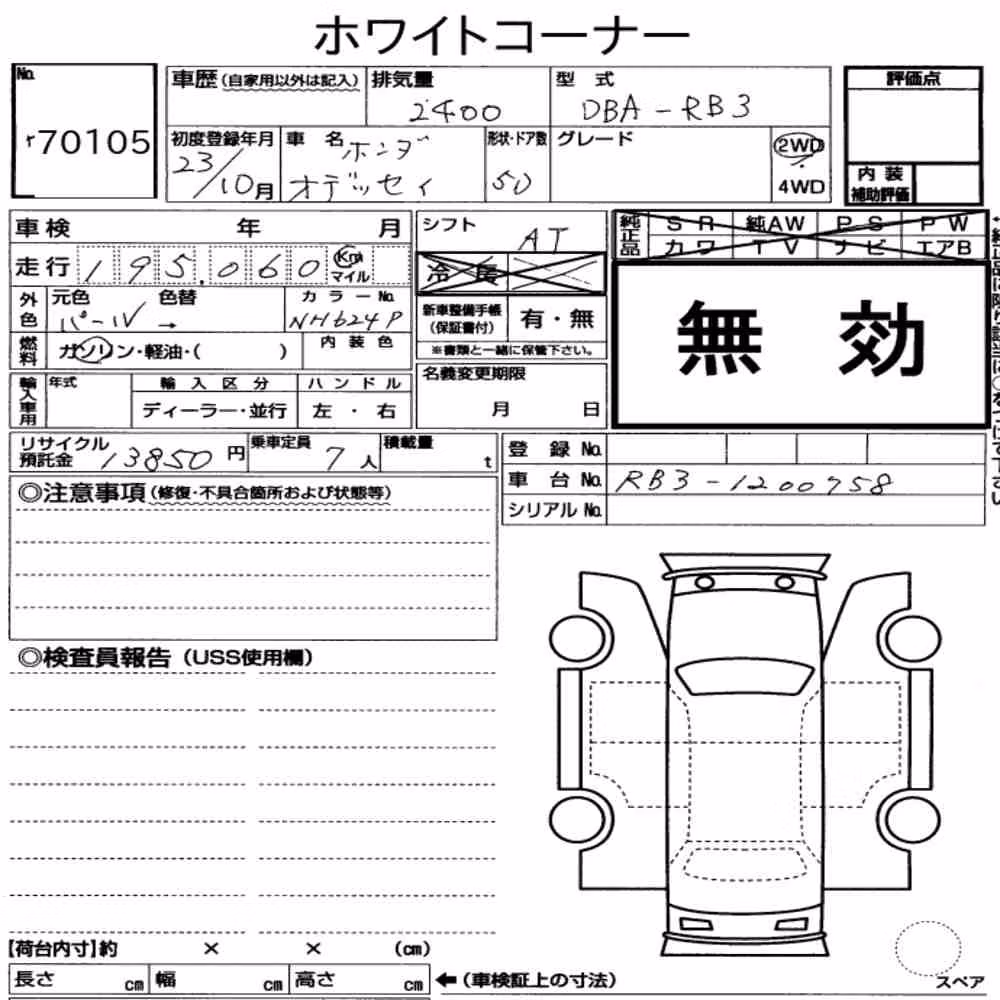 ホワイトコーナー
No. 車歴(自家用以外は記入) 排気量 2400 型式 DBA-RB3 評価点
70105
初度登録年月 23/10月 車名 ホンダ オデッセイ 形状・ドア数 5D グレード 2WD 4WD
内装補助評価
車検 年 月 シフト AT 純正品 SR 純AW PS PW
カワ TV ナビ エアB
走行 195,060 Km マイル 冷房
外色 元色 パール 色替 → カラーNo. NH624P 新車整備手帳(保証書付) 有・無
無効
燃料 ガソリン・軽油・( ) 内装色 ※書類と一緒に保管下さい。
輸入車用 年式 輸入区分 ハンドル 名義変更期限
ディーラー・並行 左・右 月 日
リサイクル預託金 13850円 乗車定員 7人 積載量 t 登録No.
車台No. RB3-1200758
◎注意事項(修復・不具合箇所および状態等) シリアルNo.
◎検査員報告(USS使用欄)
【荷台内寸】約 × × (cm)
長さ cm 幅 cm 高さ cm ←(車検証上の寸法) スペア